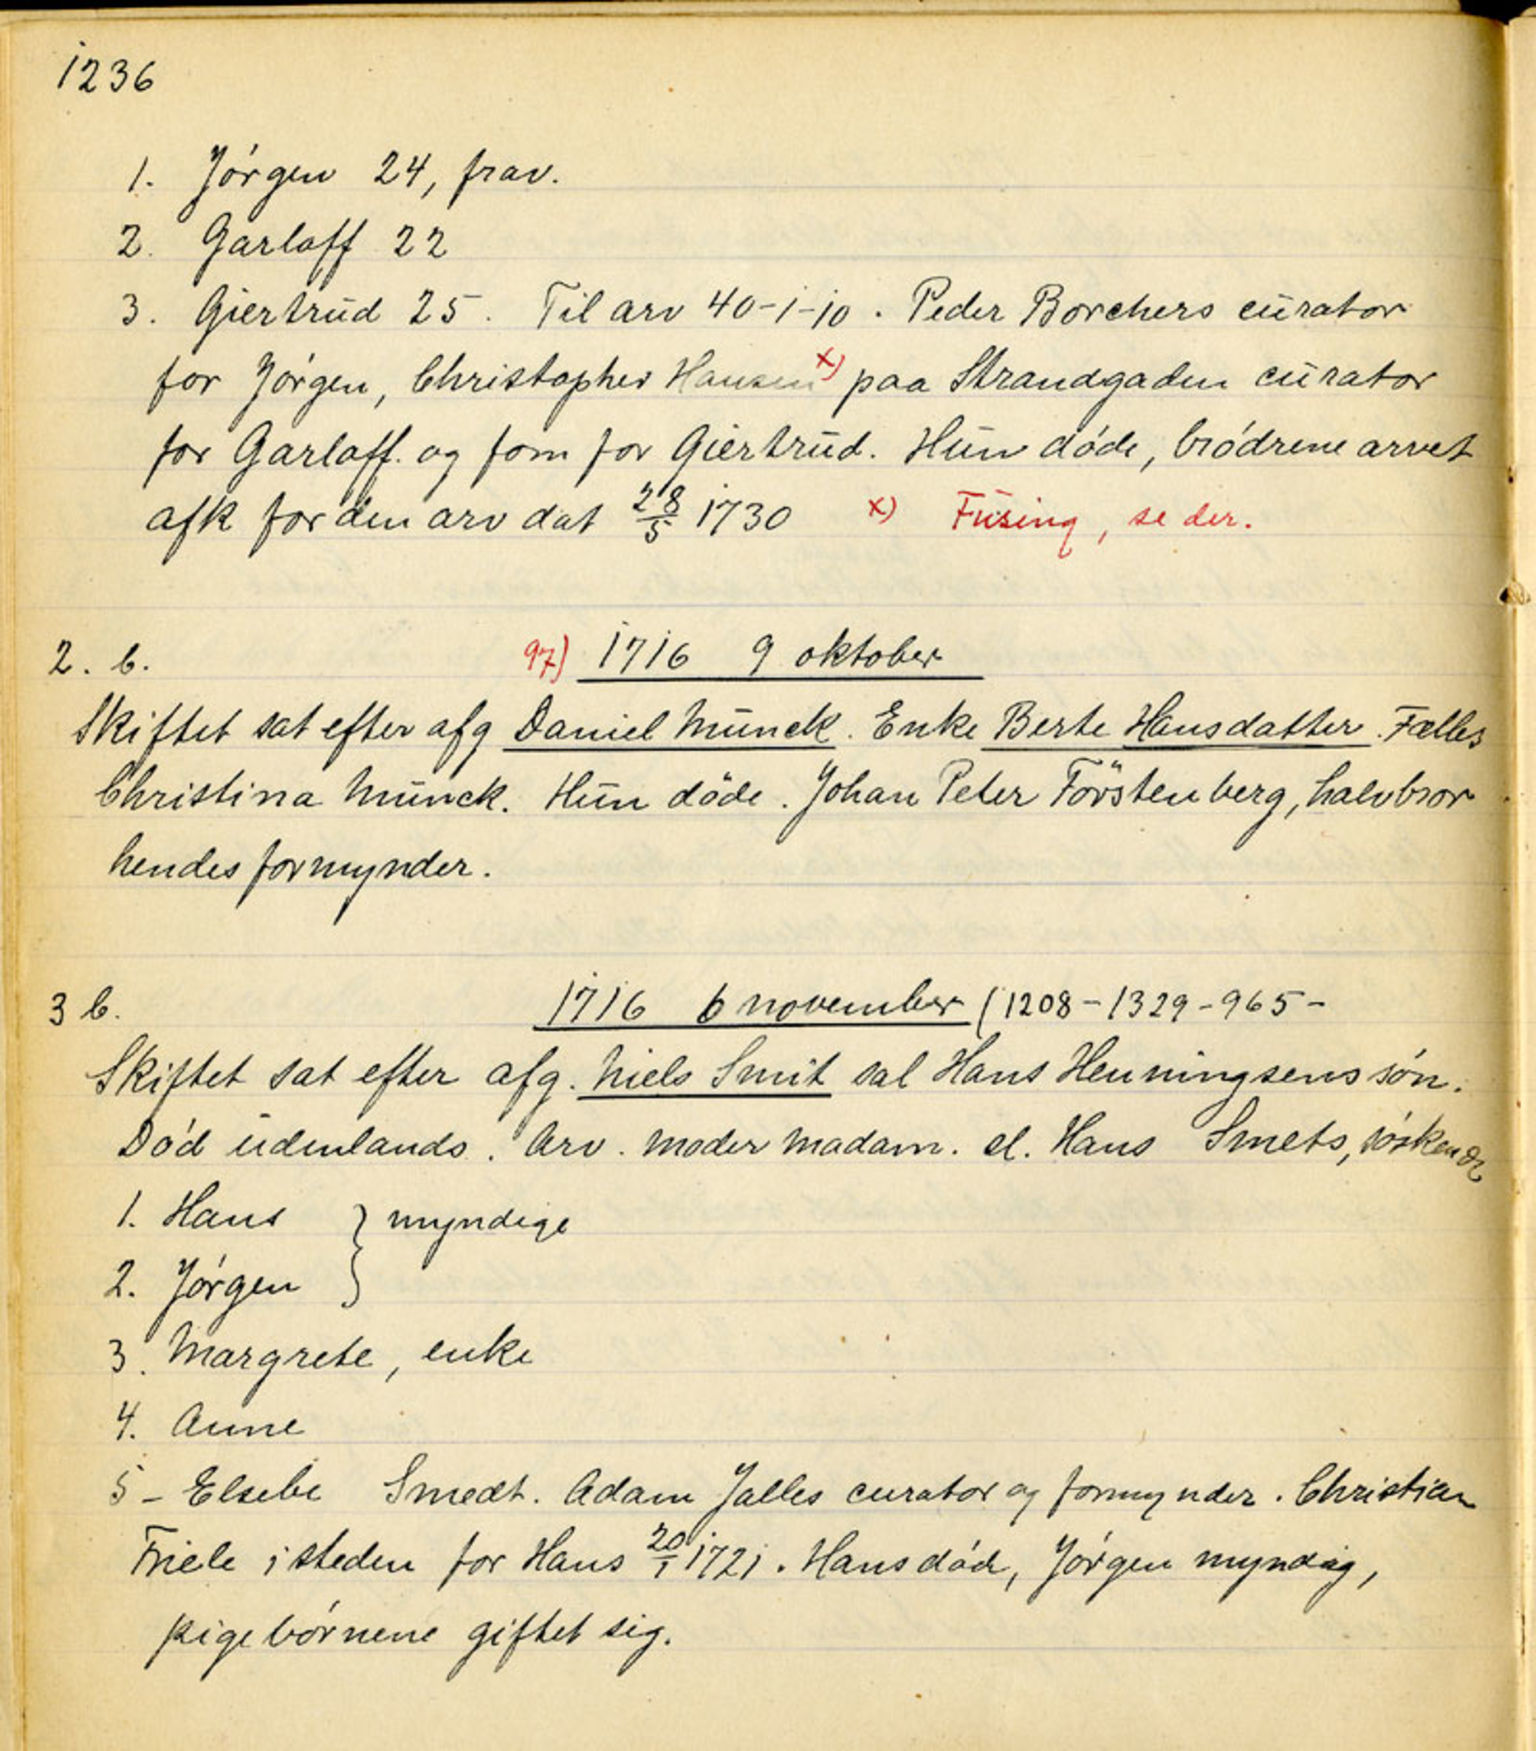 1236
1. Jörgen 24, frav.
2. Garloff 22
3. Giertrud 25. Til arv 40-1-10. Peder Borchers curator
for Jörgen, Christopher Hansen x) paa Strandgaden curator
for Garloff. og fom for Giertrud. Hun døde, brödrene arvet
afk for den arv dat 28/5 1730 x) Füsing, se der.
2. b. 97) 1716 9 oktober
Skiftet sat efter afg Daniel Munck. Enke Berte Hansdatter. Fælles
Christina Munck. Hun döde. Johan Peter Förstenberg, halvbror
hendes formynder.
3 b. 1716 6 november (1208-1329-965-
Skiftet sat efter afg. Niels Smit sal Hans Henningsens sön.
Död udenlands. Arv. moder Madam. sl. Hans Smets, söskende
1. Hans } myndige
2. Jörgen
3. Margrete, enke
4. Anne
5- Elsebe Smedt. Adam Jalles curator og formynder. Christian
Friele i steden for Hans 20/1 1721. Hans död, Jörgen myndig,
pigebörnene giftet sig.